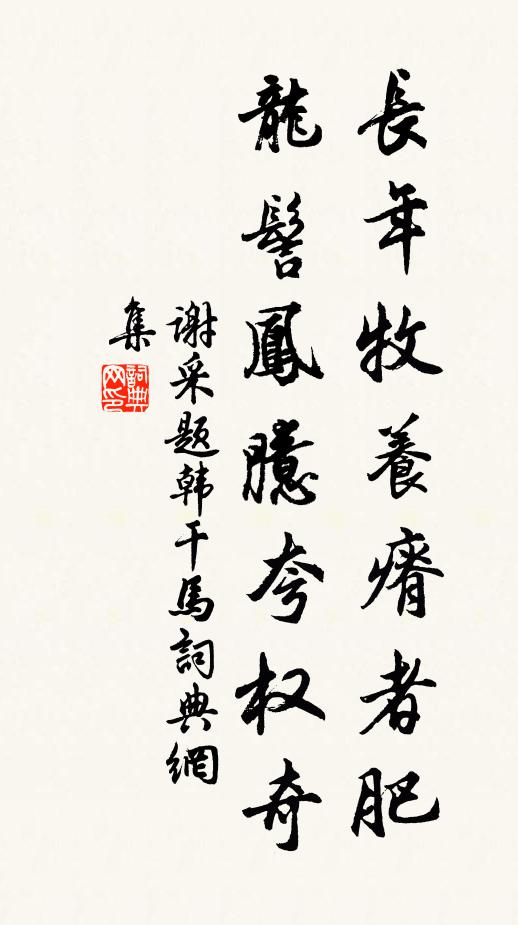 長年牧養瘠者肥
龍髻鳳臆夸权奇
谢采题韩干馬詞典網
集
詞典
网印